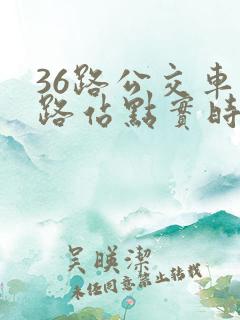 36路公交車
路佔點實時
吴暎潔
未任同意禁止转载